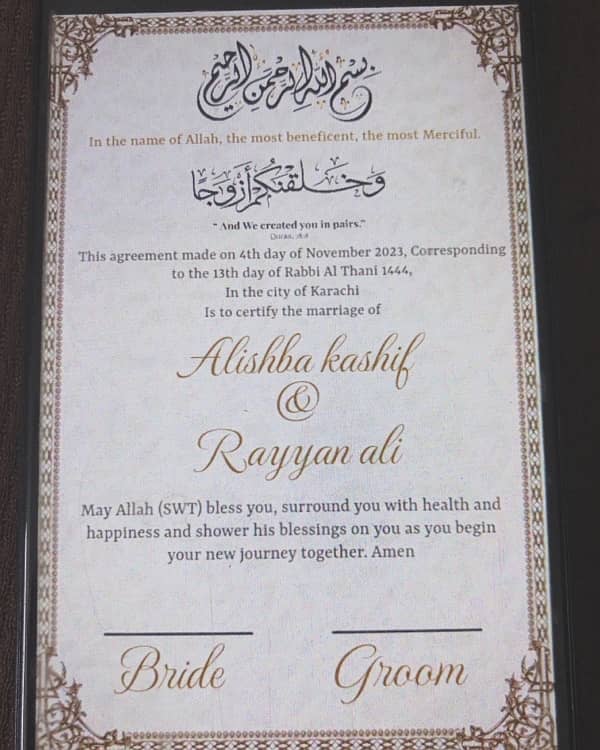 بِسْمِ اللهِ الرَّحْمَنِ الرَّحِيمِ
In the name of Allah, the most beneficent, the most Merciful.
وَخَلَقْنَكُمْ أَزْوَجًا
" And We created you in pairs."
This agreement made on 4th day of November 2023, Corresponding
to the 13th day of Rabbi Al Thani 1444,
In the city of Karachi
Is to certify the marriage of
Alishba kashif
&
Rayyan ali
May Allah (SWT) bless you, surround you with health and
happiness and shower his blessings on you as you begin
your new journey together. Amen
Bride Groom